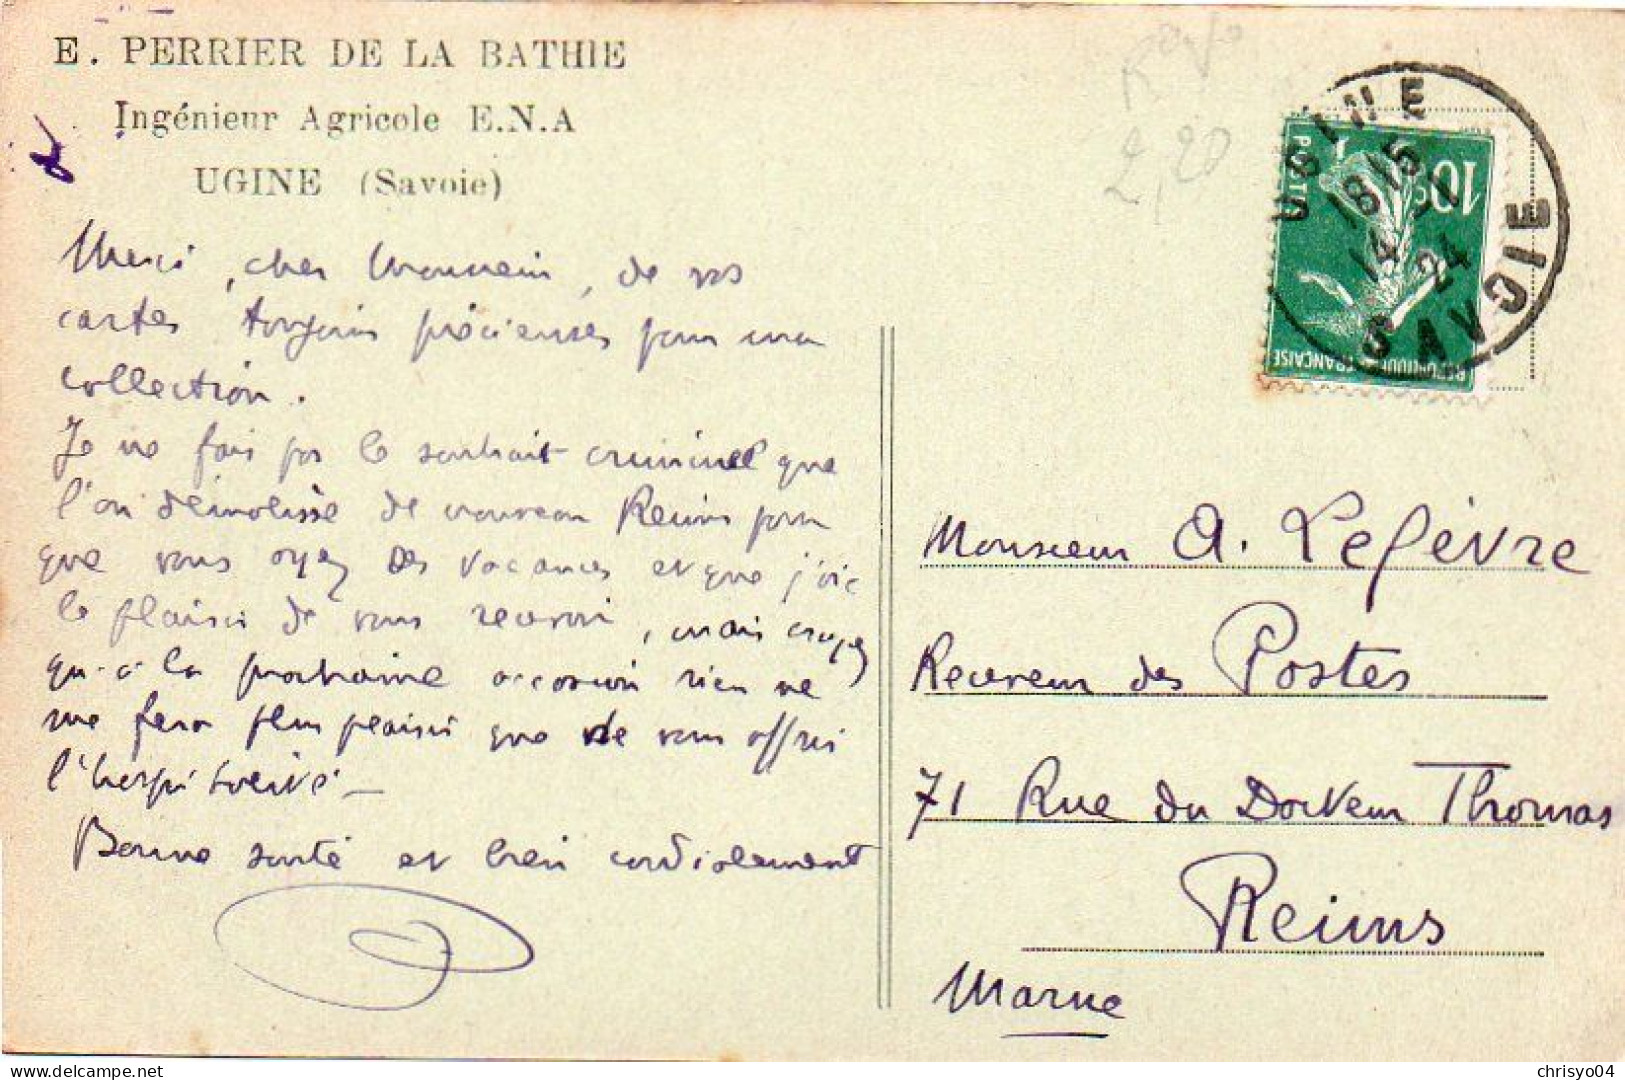 E. PERRIER DE LA BATHIE
Ingénieur Agricole E.N.A
UGINE (Savoie)
Merci, cher Monsieur, de vos
cartes toujours précieuses pour ma
collection.
Je ne fais pas le souhait criminel que
l'on démolisse de nouveau Reims pour
que vous ayez des vacances et que j'aie
le plaisir de vous recevoir, mais croyez
qu'à la prochaine occasion rien ne
me fera plus plaisir que de vous offrir
l'hospitalité –
Bonne santé et bien cordialement
2,20
UGINE
18 15
14
24
SAVOIE
10c
POSTES
REPUBLIQUE FRANÇAISE
Monsieur A. Lefèvre
Receveur des Postes
71 Rue du Docteur Thomas
Reims
Marne
chrisyo04